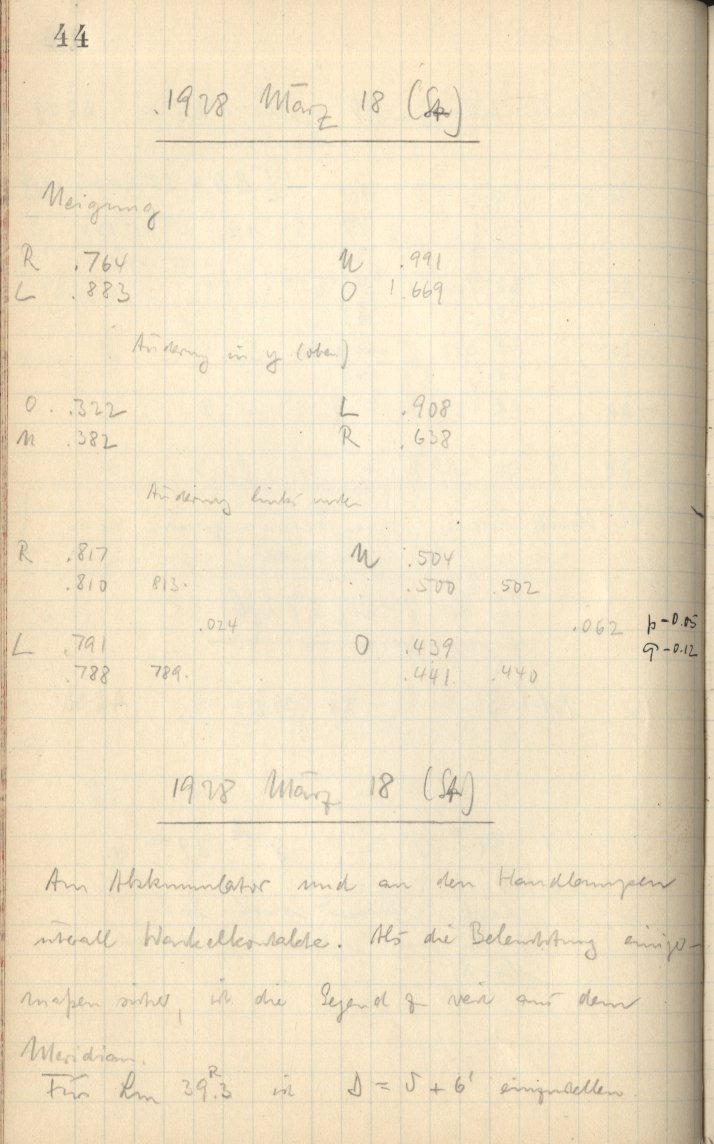 44
1928 März 18 (St)
Neigung
R .764 U .991
L .883 O 1.669
Änderung in y (oben)
O .322 L .908
U .382 R .638
Änderung links unten
R .817 U .504
.810 813. .500 .502
.024 .062 p-0.05
L .791 O .439 q-0.12
.788 789. .441 .440
1928 März 18 (St)
Am Akkumulator und an den Handlampen
überall Wackelkontakte. Als die Beleuchtung einiger-
maßen sicher, ist die Gegend zu weit aus dem
Meridian.
Für 39.3 R ist = δ + 6' einzustellen.